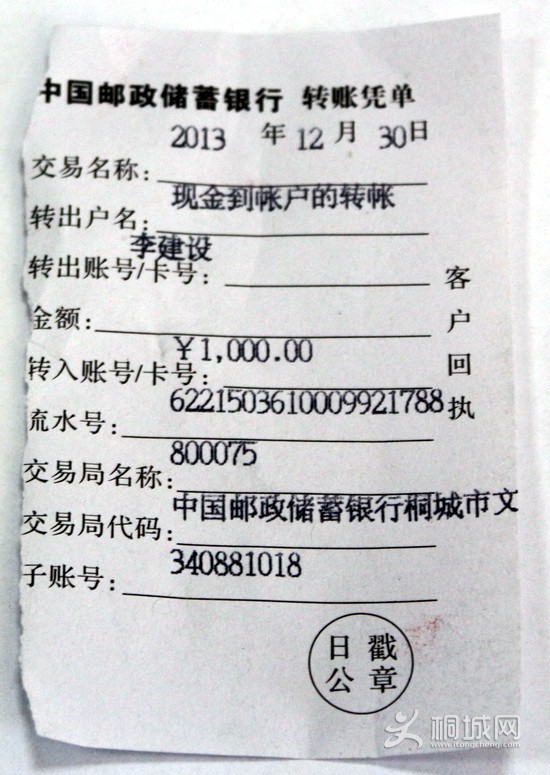 中国邮政储蓄银行 转账凭单
2013 年 12 月 30日
交易名称:
现金到帐户的转帐
转出户名:
李建设
转出账号/卡号:
金额:
￥1,000.00
转入账号/卡号:
6221503610009921788
流水号:
800075
交易局名称:
中国邮政储蓄银行桐城市文
交易局代码:
340881018
子账号:
客户回执
日戳
公章
桐城网
www.itongcheng.com